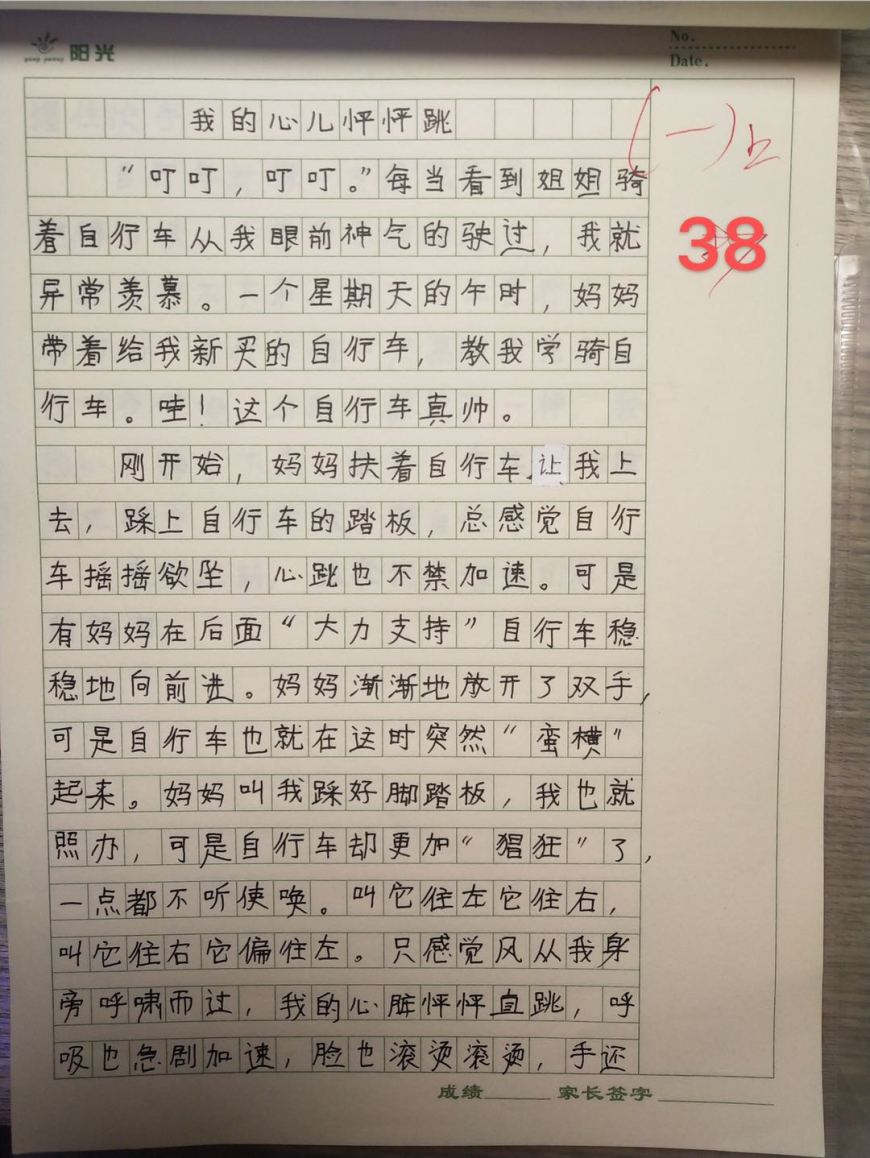 阳光
No.
Date.
我的心儿怦怦跳
(一)上
38
“叮叮，叮叮。”每当看到姐姐骑
着自行车从我眼前神气的驶过，我就
异常羡慕。一个星期天的午时，妈妈
带着给我新买的自行车，教我学骑自
行车。哇！这个自行车真帅。
刚开始，妈妈扶着自行车，让我上
去，踩上自行车的踏板，总感觉自行
车摇摇欲坠，心跳也不禁加速。可是
有妈妈在后面“大力支持”自行车稳
稳地向前进。妈妈渐渐地放开了双手，
可是自行车也就在这时突然“蛮横”
起来。妈妈叫我踩好脚踏板，我也就
照办，可是自行车却更加“猖狂”了，
一点都不听使唤。叫它往左它往右，
叫它往右它偏往左。只感觉风从我身
旁呼啸而过，我的心脏怦怦直跳，呼
吸也急剧加速，脸也滚烫滚烫，手还
成绩 家长签字